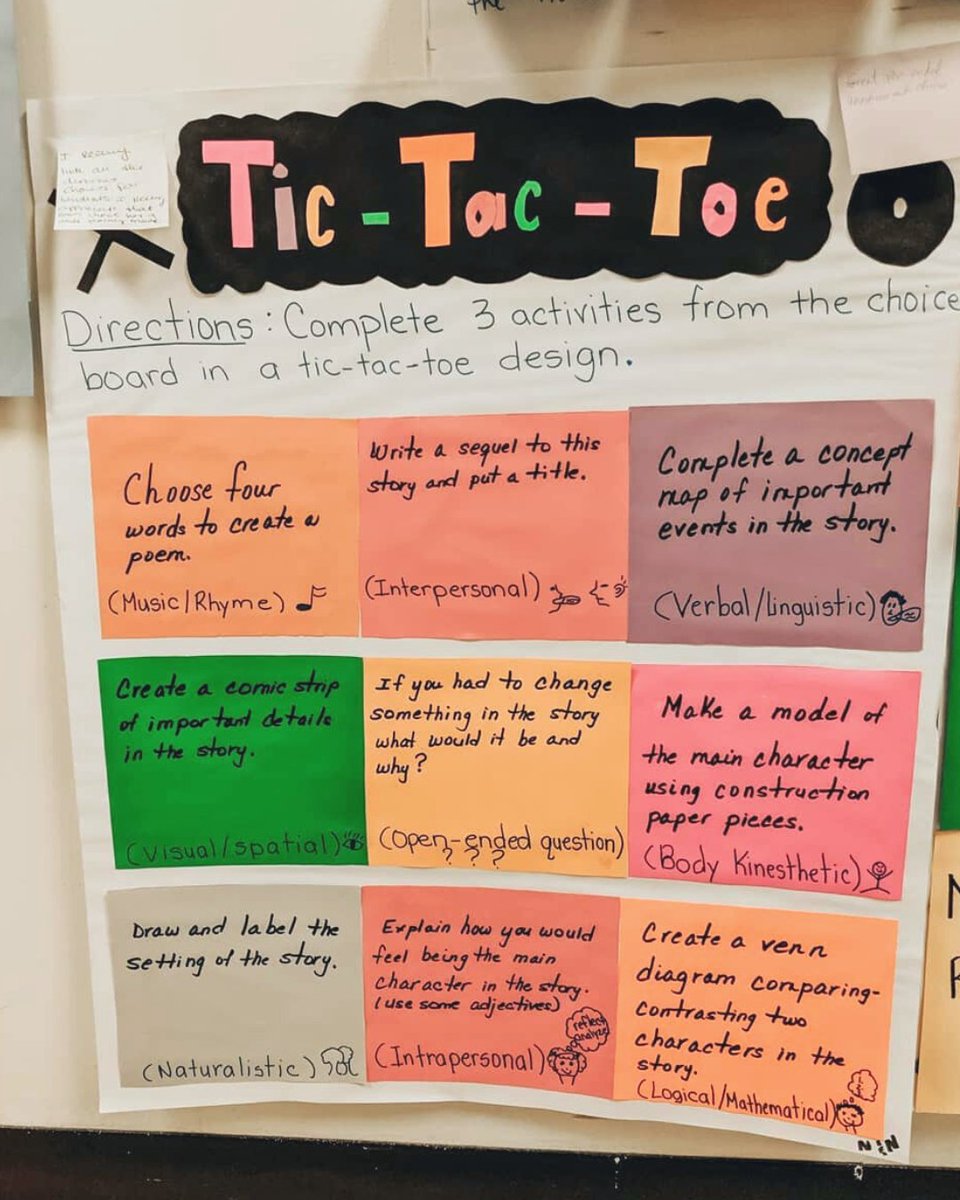 the
Tic-Tac-Toe
Directions: Complete 3 activities from the choice
board in a tic-tac-toe design.
Choose four
words to create a
poem.
(Music/Rhyme)
Write a sequel to this
story and put a title.
(Interpersonal)
Complete a concept
map of important
events in the story.
(Verbal/linguistic)
Create a comic strip
of important details
in the story.
(Visual/spatial)
If you had to change
something in the story
what would it be and
why?
(Open-ended question)
? ? ?
Make a model of
the main character
using construction
paper pieces.
(Body Kinesthetic)
Draw and label the
setting of the story.
(Naturalistic)
Explain how you would
feel being the main
character in the story.
(use some adjectives)
reflect
analyze
(Intrapersonal)
Create a venn
diagram comparing-
contrasting two
characters in the
story.
(Logical/Mathematical)